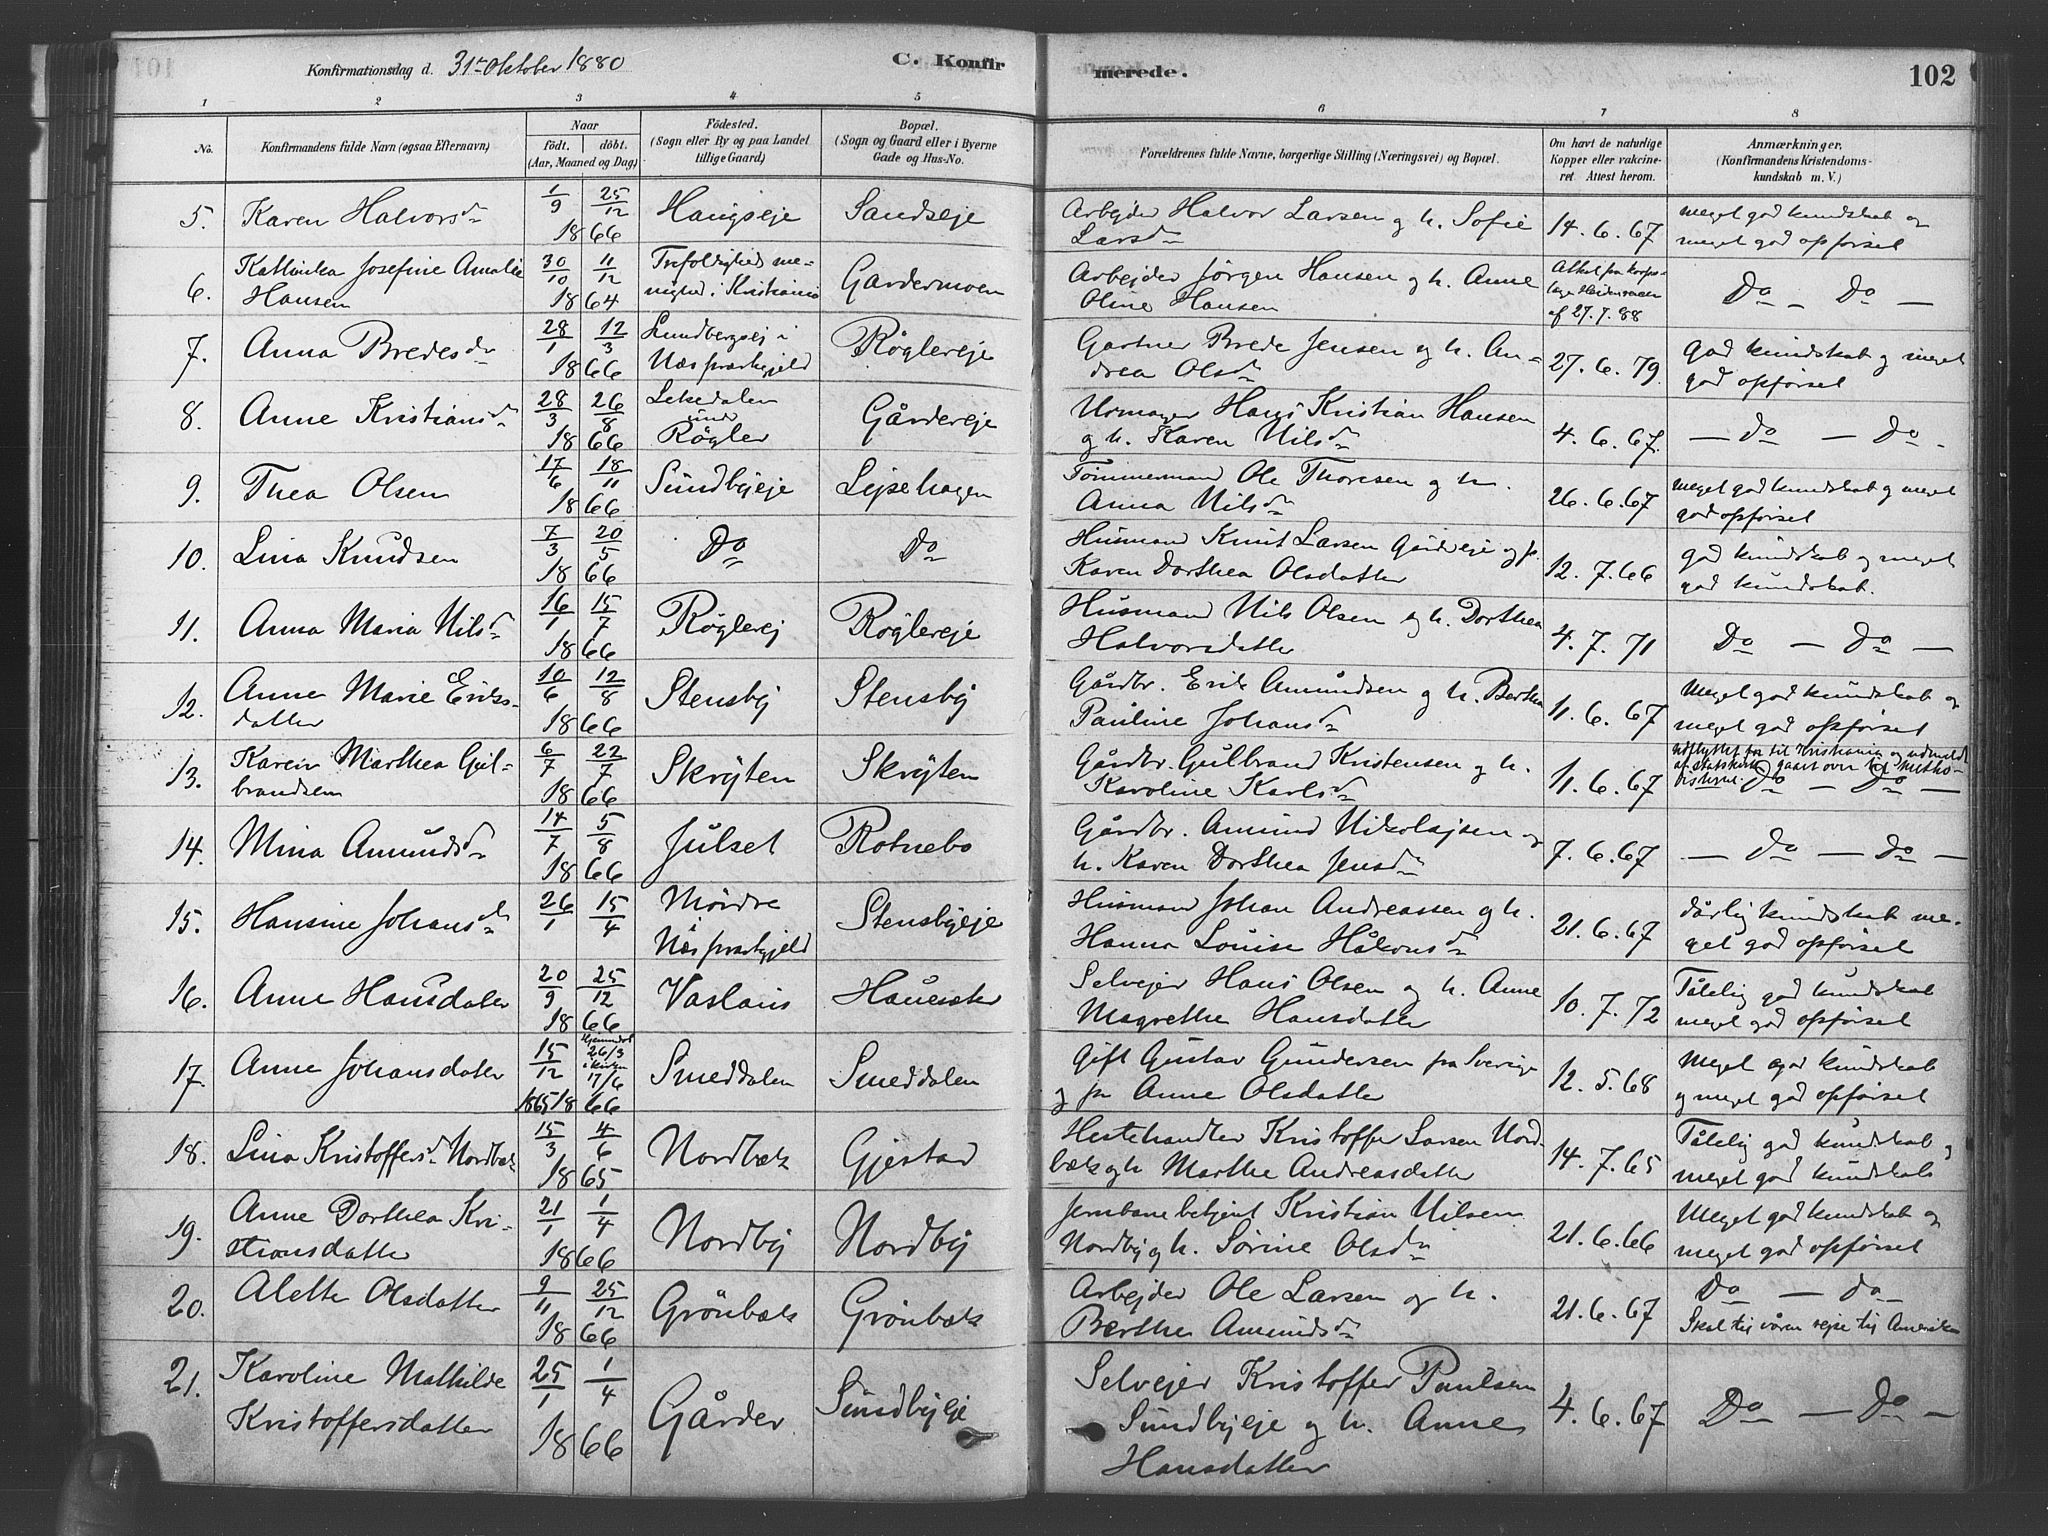 Konfirmationsdag d. 31te Oktober 1880
C. Konfir
merede.
102
1 2 3 4 5 6 7 8
No.
Konfirmandens fulde Navn (ogsaa Efternavn)
Naar
født. døbt.
(Aar, Maaned og Dag)
Fødested.
(Sogn eller By og paa Landet
tillige Gaard)
Bopæl.
(Sogn og Gaard eller i Byerne
Gade og Hus-No.
Forældrenes fulde Navne, borgerlige Stilling (Næringsvei) og Bopæl.
Om havt de naturlige
Kopper eller vakcine-
ret. Attest herom.
Anmærkninger.
(Konfirmandens Kristendoms-
kundskab m. V.)
5. Karen Halvorsdr 1/9 25/12 1866 Haugseje Sandseje
Arbejder Halvor Larsen og h. Sofie
Larsdr
14.6.67
meget god kundskab og
meget god opførsel
6. Kathinka Josefine Amalie
Hansen
30/10 11/12 1864
Trefoldigheds me-
nighed i Kristiania
Gardermoen
Arbejder Jørgen Hansen og h. Anne
Oline Hansen
af 27.7.88
Do — Do —
7. Anna Bredesdr 28/1 12/3 1866
Lundbergsej i
Næs præstegjeld
Røglereje
Gartner Brede Jensen og h. An-
drea Olsdr
27.6.79.
god kundskab og meget
god opførsel
8. Anne Kristiansdr 28/3 26/8 1866
Røgler
Gårdereje
Urmager Hans Kristian Hansen
og h. Karen Nilsdr
4.6.67.
— Do — Do -
9. Thea Olsen 17/6 18/11 1866 Sundbyeje Lejsehagen
Tømmermand Ole Thoresen og h.
Anna Nilsdr
26.6.67
meget god kundskab og meget
god opførsel
10. Lina Knudsen 7/3 20/5 1866 Do Do
Husmand Knut Larsen Gårdereje og h.
Karen Dorthea Olsdatter
12.7.66
god kundskab og meget
god kundskab.
11. Anna Maria Nilsdr 16/1 15/7 1866 Røglerej Røglereje
Husmand Nils Olsen og h. Dorthea
Halvorsdatter
4.7.71
Do — Do —
12. Anne Marie Eriks-
datter
10/6 12/8 1866 Stensby Stensby
Gårdbr. Erik Amundsen og h. Berthe
Pauline Johansdr
11.6.67
Meget god kundskab og
meget god opførsel
13. Karen Marthea Gul-
brandsen
6/7 22/7 1866 Skrøten Skrøten
Gårdbr. Gulbrand Kristensen og h.
Karoline Karlsdr
11.6.67
til Kristiania og udmeldt
af statskirken gaaet over til metho-
disterne. Do — Do —
14. Mina Amundsdr 14/7 5/8 1866 Julset Rotnebo
Gårdbr. Amund Nikolajsen og
h. Karen Dorthea Jensdr
7.6.67
— Do — Do —
15. Hansine Johansdr 26/1 15/4
Mørdre
Næs præstegjeld
Stensbyeje
Husmand Johan Andreassen og h.
Hanna Louise Håkonsdr
21.6.67
dårlig kundskab me-
get god opførsel
16. Anne Hansdatter 20/9 25/12 1866
Selvejer Hans Olsen og h. Anne
Magrethe Hansdatter
10.7.72
Tålelig god kundskab
meget god opførsel
17. Anne Johansdatter 15/12 1865
Hjemmedøbt
26/3
i kirken
17/6
1866
Smeddalen Smeddalen
Gift Gustav Gundersen fra Sverige
og pe Anne Olsdatter
12.5.68
Meget god kundskab
og meget god opførsel
18. Lina Kristoffersdr Nordbæk 15/3 4/6 1865 Nordbæk Gjestad
Hestehandler Kristoffer Larsen Nord-
bæk og h. Marthe Andreasdatter
14.7.65
Tålelig god kundskab og
meget god kundskab
19. Anne Dorthea Kri-
stiansdatter
21/1 1/4 1866 Nordby Nordby
Jernbanebetjent Kristian Nilsen
Nordby og h. Sørine Olsdr
21.6.66
Meget god kundskab og
meget god opførsel
20. Alette Olsdatter 9/11 25/12 1866 Grønbæk Grønbæk
Arbejder Ole Larsen og h.
Berthe Amundsdr
21.6.67
Do — Do
Skal til våren rejse til Amerika
21. Karoline Mathilde
Kristoffersdatter
25/1 1/4 1866 Gårder Sundbyeje
Selvejer Kristoffer Paulsen
Sundbyeje og h. Anne
Hansdatter
4.6.67
Do — Do —